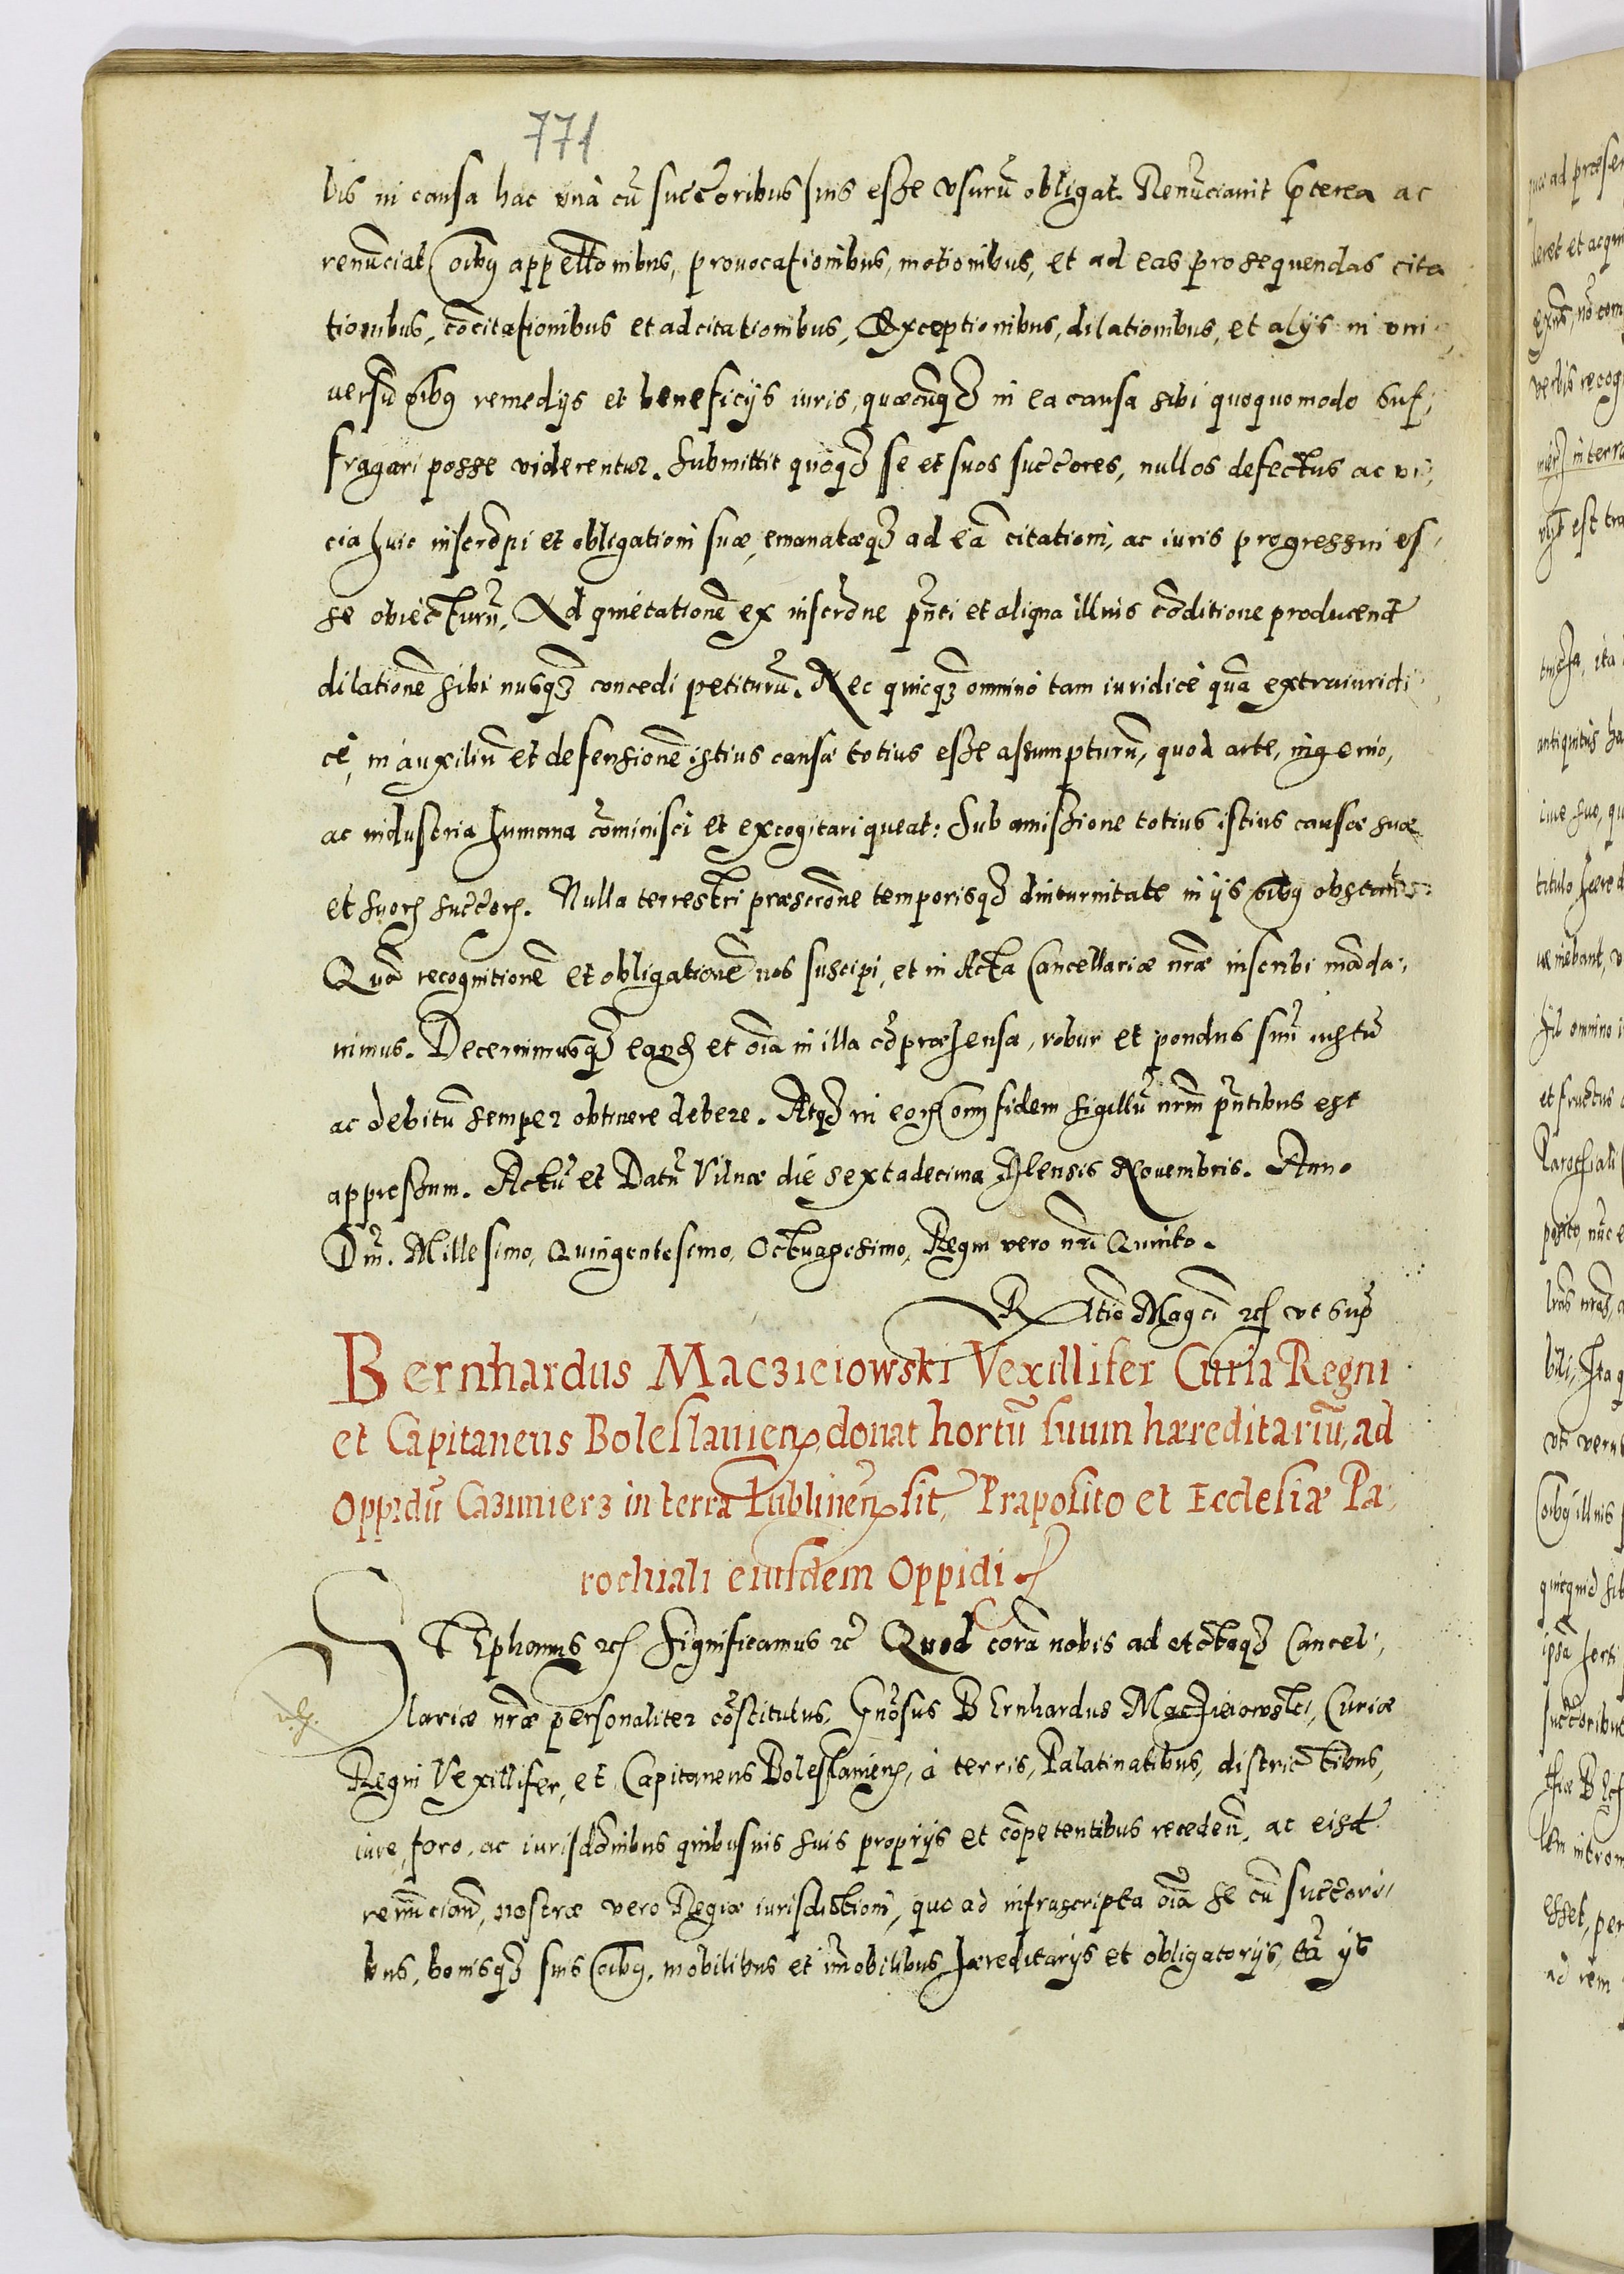 771
bis in causa hac unà cū succ̄oribus suis esse usurū obligat. Renūciavit p̄terea ac
renūciat oībꝰ appellōnibus, provocationibus, motionibus, et ad eas prosequendas cita
tionibus, cōcitationibus et adcitationibus, Exceptionibus, dilationibus, et alijs in uni
versū oībꝰ remedijs et beneficijs iuris, quæcūqꝫ in ea causa sibi quoquomodo suf,
fragari posse viderentur. Submittit quoqꝫ se et suos succ̄ores, nullos defectus ac vi,
cia huic inscrōni et obligationi suæ, emanatæqꝫ ad eā citationi, ac iuris progressui es,
se obiecturū. Ad quietationē ex inscrōne pn̄ti et aliqua illius cōditione producend
dilationē sibi nusqꝫ concedi petiturū. Nec quicqꝫ omnino tam iuridicè quā extraiuridi
cè, in auxiliū et defensionē istius causæ totius esse assumpturū, quod arte, ingenio,
ac industria humana cōminisci et excogitari queat: Sub amissione totius istius causæ suæ
et suorꝫ succ̄orꝫ. Nulla terrestri præscrōne temporisqꝫ diuturnitate in ijs oībꝰ obstante:
Quā recognitionē et obligationē nos suscipi, et in Acta Cancellariæ nr̄æ inscribi māda,
vimus. Decernimusqꝫ eandꝫ et oīa in illa cōpræhensa, robur et pondus suū iustū
ac debitū semper obtinere debere. Atqꝫ in eorꝫ oīm fidem sigillū nr̄m pn̄tibus est
appressum. Actū et Datū Vilnæ die sextadecima Mensis Novembris. Anno
Dn̄i. Millesimo, Quingentesimo, Octuagesimo, Regni vero nr̄i Quinto.
Rltio Magci ꝛcꝭ ut sup̄
Bernhardus Maczieiowski Vexillifer Curiæ Regni
et Capitaneus Boleslaviensꝭ, donat hortū suum hæreditariū, ad
Oppidū Cazimierz in terra Lublinensꝭ sit, Præposito et Ecclesiæ Pa,
rochiali eiusdem Oppidi.
Stephanus ꝛcꝭ Significamus ꝛc̄ Quod corā nobis ad et Actaqꝫ Cancel,
lariæ nr̄æ personaliter cōstitutus, Gn̄osus Bernhardus Maczieiowski, Curiæ
Regni Vexillifer, et Capitaneus Boleslaviensꝭ, à terris, Palatinatibus, districtibus,
iure, foro, ac iurisdōnibus quibusvis suis proprijs et cōpetentibus recedeñ, ac eisd
renūciañ, nostræ vero Regiæ iurisdictioni, quo ad infrascripta oīa se cū succ̄ori,
bus, bonisqꝫ suis oībꝰ, mobilibus et im̄obilibus hæreditarijs et obligatorijs, tā ijs